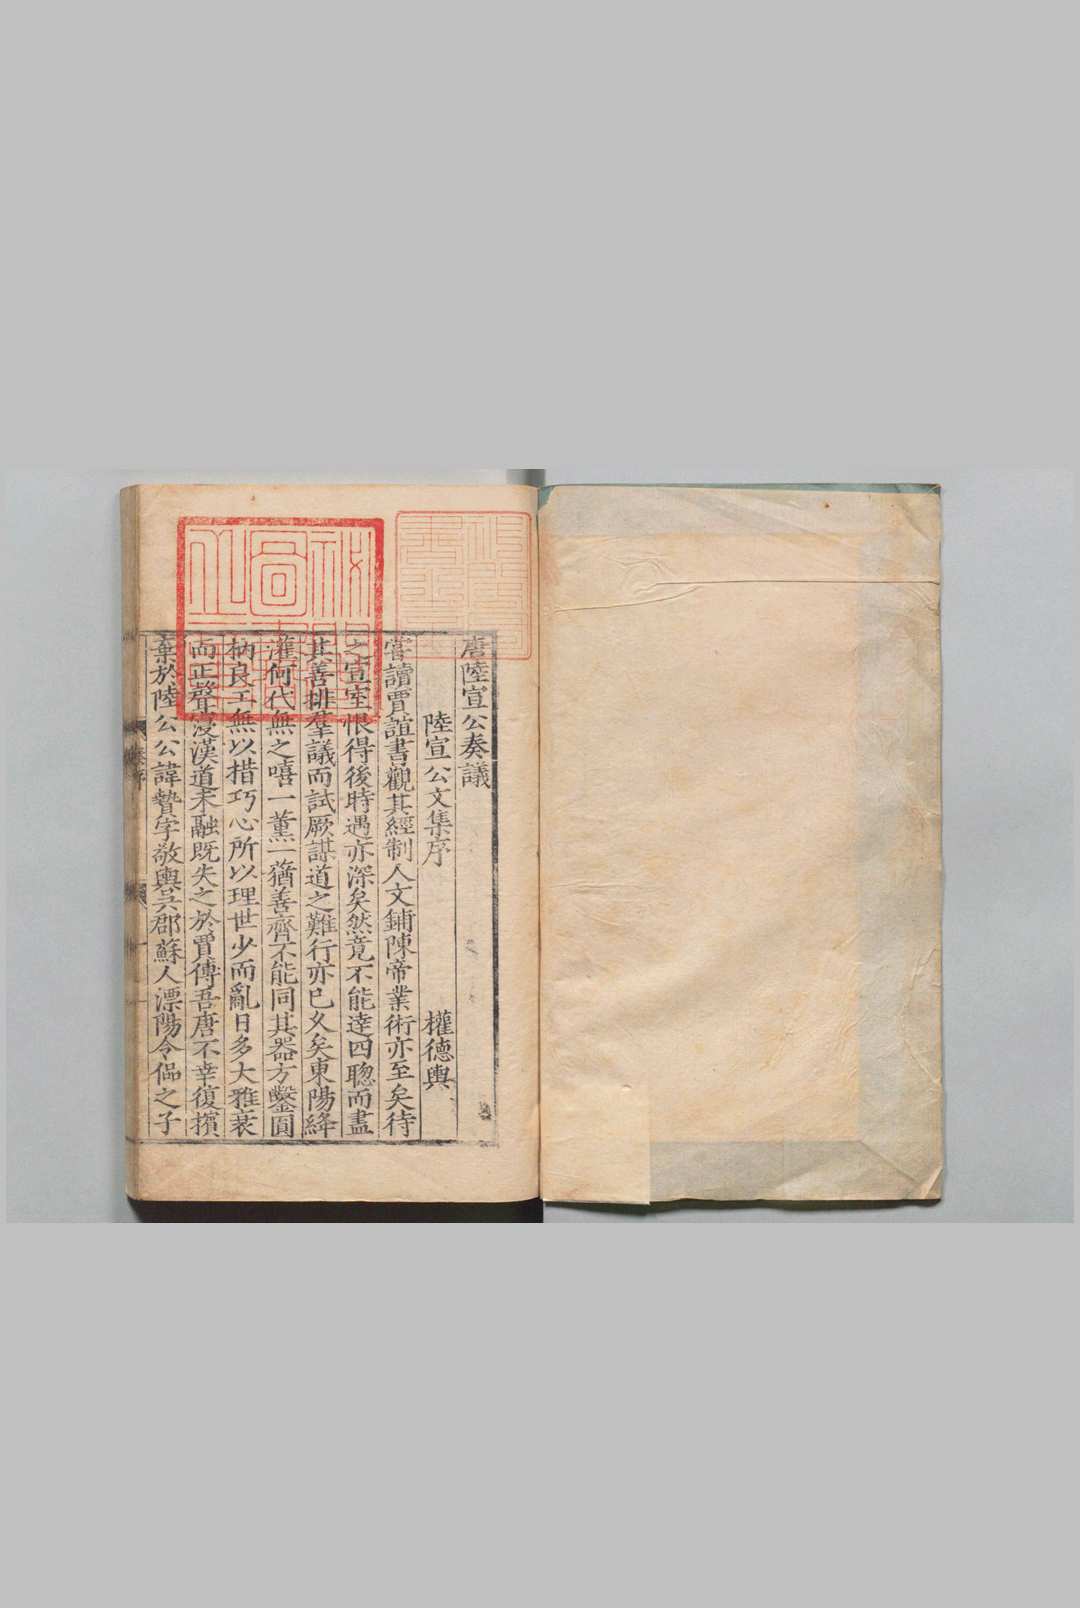 唐陸宣公奏議
陸宣公文集序 權德輿
嘗讀賈誼書觀其經制人文鋪陳帝業術亦至矣待
之宣室恨得後時遇亦深矣然竟不能達四聦而盡
其善排羣議而試厥謀道之難行亦已久矣東陽絳
灌何代無之嘻一薰一蕕善齊不能同其器方鑿圓
枘良工無以措巧心所以理世少而亂日多大雅衰
而正聲寖漢道未融既失之於賈傅吾唐不幸復擯
棄於陸公公諱贄字敬輿吳郡蘇人溧陽令偘之子